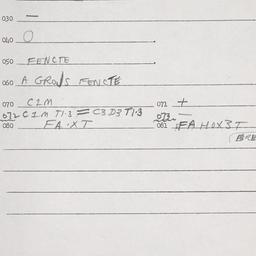 030 —
040 O
050 FENCTE
060 A GROUS FENCTE
070 C1M 071 +
072 C1M T1.3 = C3D3 T1.3 073 —
080 FA.XT 081 FAHOX3T